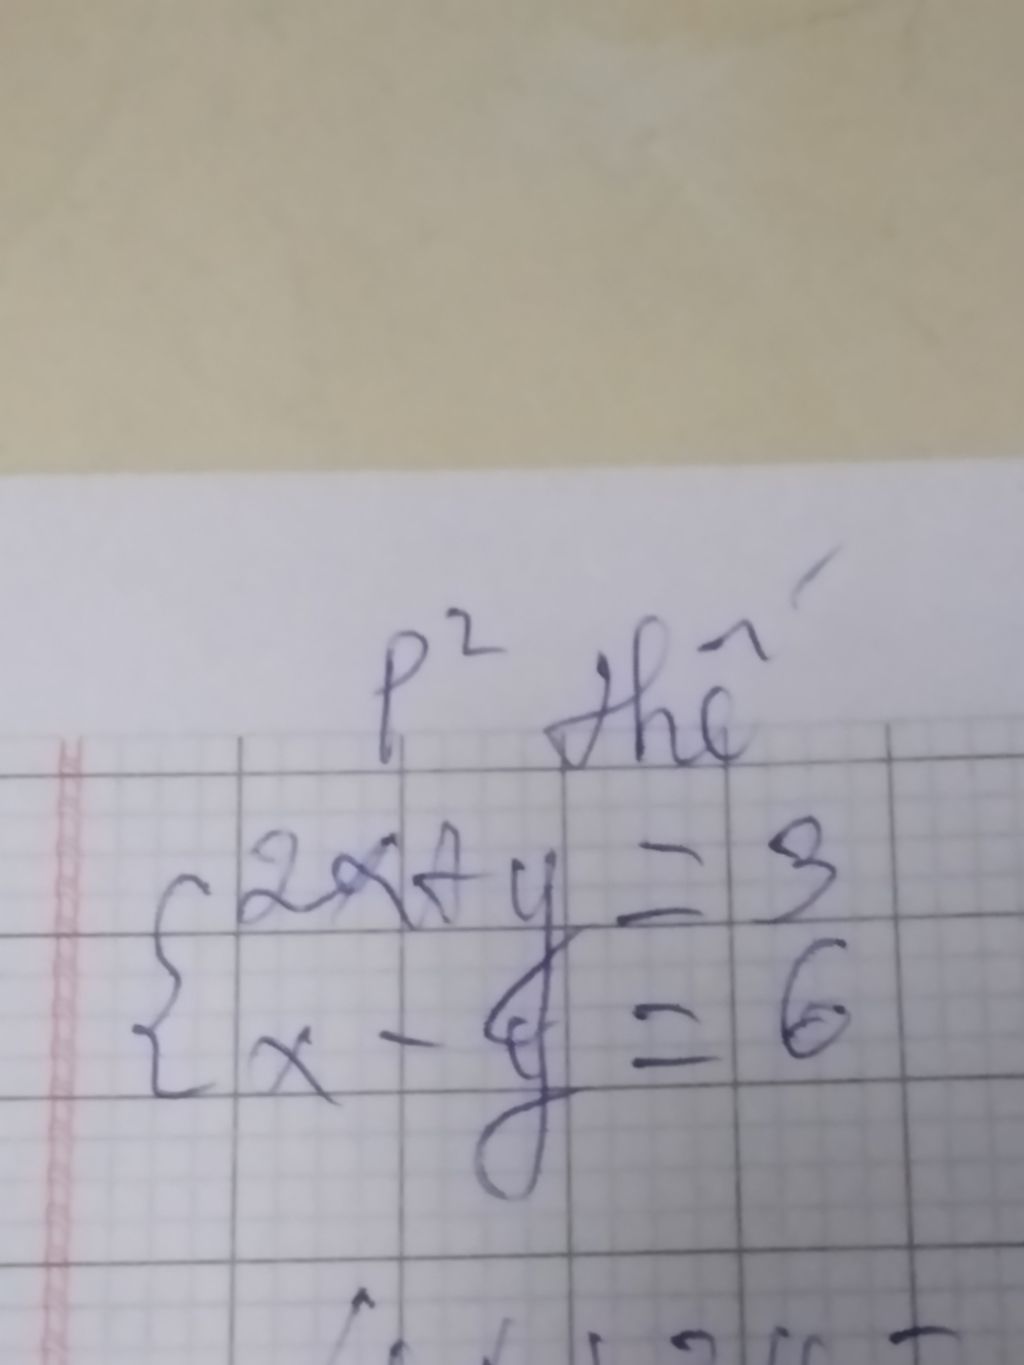 P² thế
{ 2x + y = 3
x - y = 6